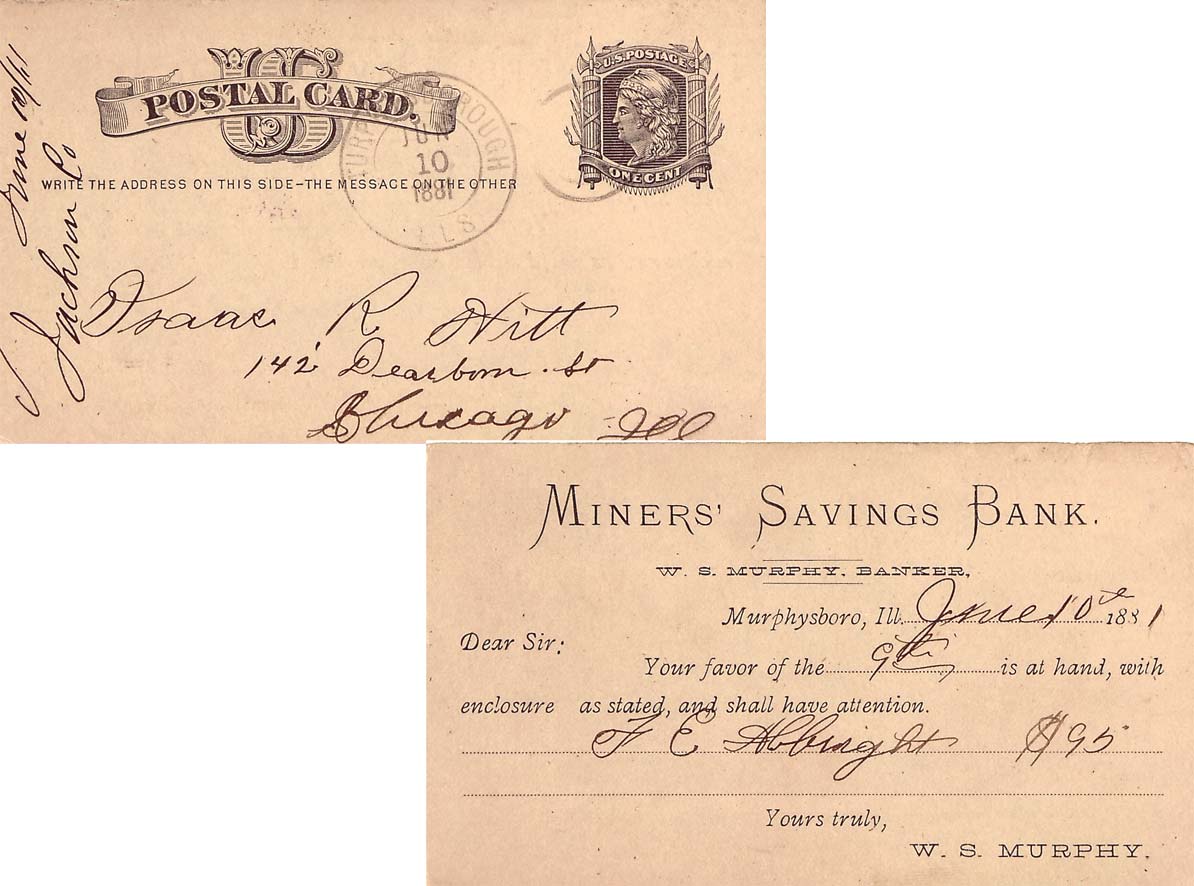 US
POSTAL CARD.
U.S. POSTAGE
ONE CENT
JUN
10
1881
ILLS
WRITE THE ADDRESS ON THIS SIDE–THE MESSAGE ON THE OTHER
Isaac R Hitt
142 Dearborn St
Chicago Ill
Jackson Co
June 10/81
MINERS' SAVINGS BANK.
W. S. MURPHY, BANKER,
Murphysboro, Ill. June 10th 1881
Dear Sir:
Your favor of the 9th is at hand, with
enclosure as stated, and shall have attention.
F E Albright $95
Yours truly,
W. S. MURPHY.